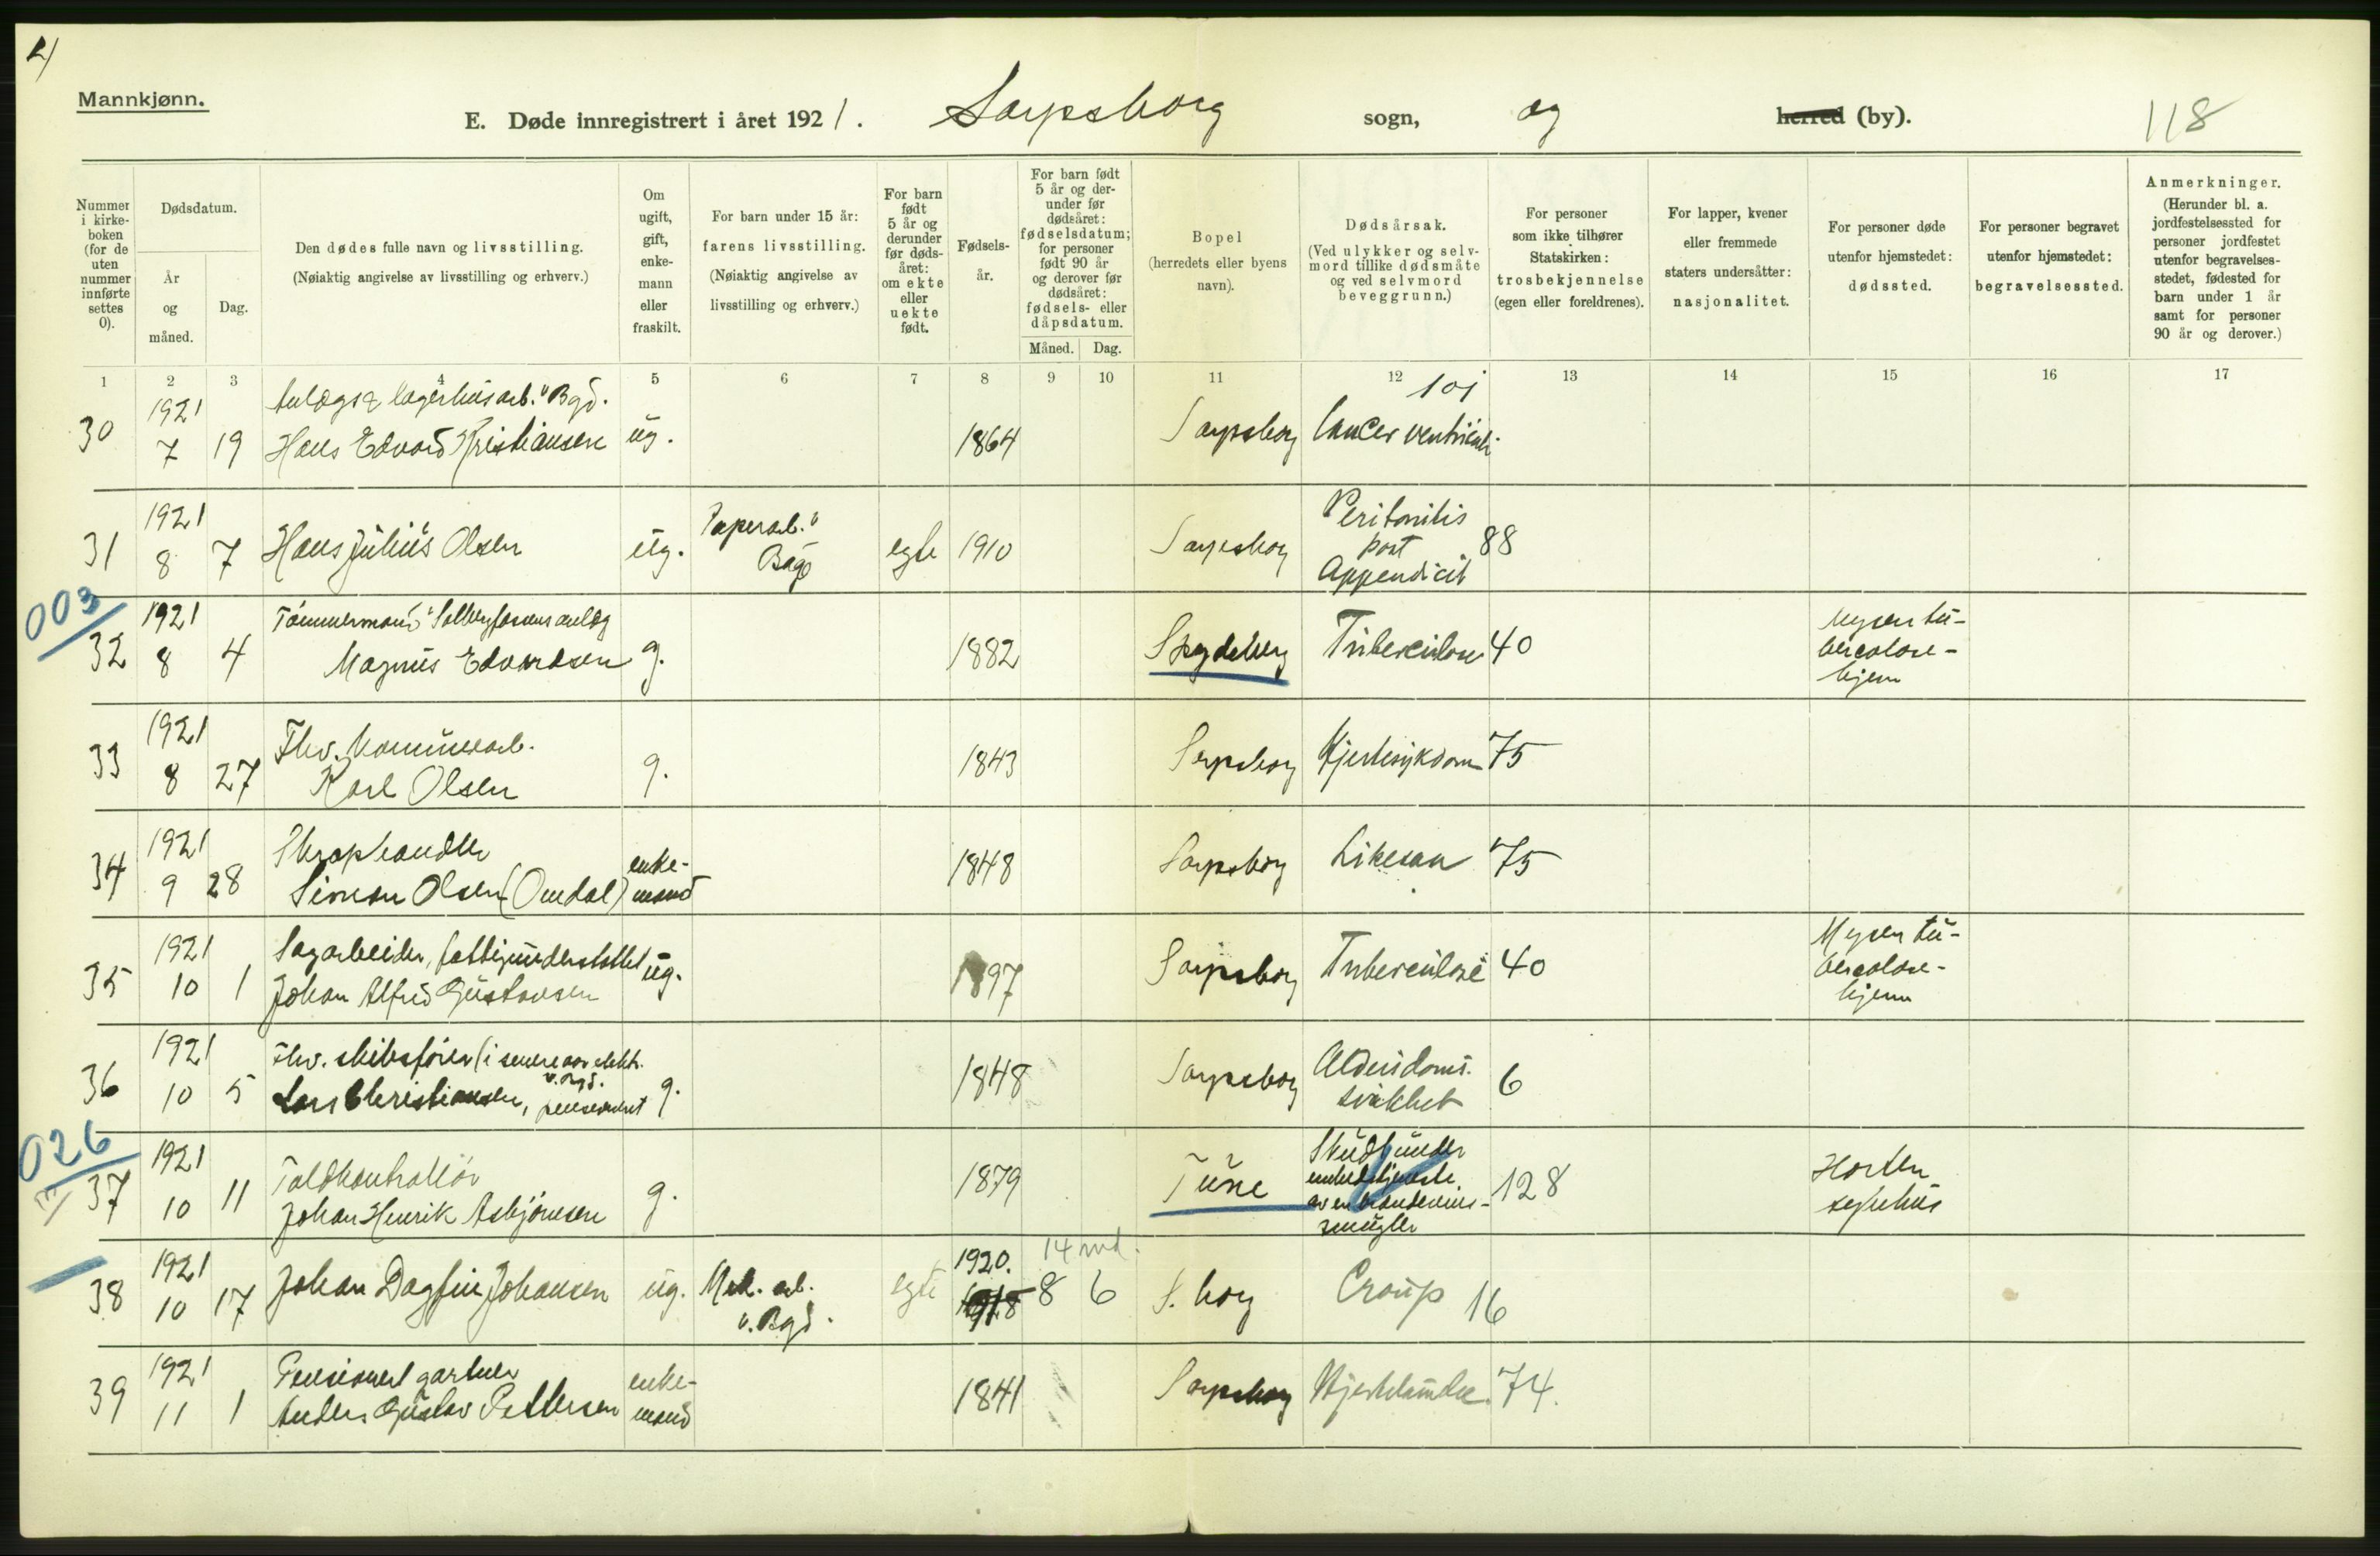 4)
Mannkjønn.
E. Døde innregistrert i året 1921. Sarpsborg sogn, og herred (by). 118
Nummer i kirke-boken (for de uten nummer innførte settes 0).
Dødsdatum.
År og måned.
Dag.
Den dødes fulle navn og livsstilling.
(Nøiaktig angivelse av livsstilling og erhverv.)
Om ugift, gift, enke-mann eller fraskilt.
For barn under 15 år: farens livsstilling.
(Nøiaktig angivelse av livsstilling og erhverv.)
For barn født 5 år og derunder før døds-året: om ekte eller uekte født.
Fødsels-år.
For barn født 5 år og der-under før dødsåret: fødselsdatum; for personer født 90 år og derover før dødsåret: fødsels- eller dåpsdatum.
Måned. Dag.
Bopel
(herredets eller byens navn).
Dødsårsak.
(Ved ulykker og selv-mord tillike dødsmåte og ved selvmord beveggrunn.)
For personer som ikke tilhører Statskirken: trosbekjennelse (egen eller foreldrenes).
For lapper, kvener eller fremmede staters undersåtter: nasjonalitet.
For personer døde utenfor hjemstedet: dødssted.
For personer begravet utenfor hjemstedet: begravelsessted.
Anmerkninger.
(Herunder bl. a. jordfestelsessted for personer jordfestet utenfor begravelses-stedet, fødested for barn under 1 år samt for personer 90 år og derover.)
1 2 3 4 5 6 7 8 9 10 11 12 13 14 15 16 17
1921 lagerhusarb. v Bgd. 101
30 7 19 Hans Edvard Kristiansen ug. 1864 Sarpsborg Cancer ventriculi
1921 Paperarb. v Peritonitis
31 8 7 Hans Julius Olsen ug. Bgd egte 1910 Sarpsborg post 88
Appendicit
003
1921 Tømmermand v Solbergfossens anlæg Mysen tu-
32 8 4 Magnus Edvardsen g. 1882 Skydeberg Tuberculose 40 berculose-
hjem
1921 Fhv. kommunearb.
33 8 27 Karl Olsen g. 1843 Sarpsborg Hjertesykdom 75
1921 Skraphandler enke-
34 9 28 Simon Olsen (Omdal) mand 1848 Sarpsborg 75
1921 Sagarbeider, fattigunderstøttet ug. Mysen tu-
35 10 1 Johan Alfred Gustavsen 1897 Sarpsborg Tuberculose 40 berculose-
hjem
1921 Fhv. skibsfører (i senere aar
v. Bgd.
36 10 5 Lars Christiansen, pensioneret g. 1848 Sarpsborg Alderdoms- 6
svakhet
026
1921 Toldkontrollør Skudt under
37 10 11 Johan Henrik Asbjørnsen g. 1879 Tune embedstjeneste 128 Horten
av en brændevins- sykehus
smugler
1921 1920. 14 md.
38 10 17 Johan Dagfin Johansen ug. Mek. arb. egte 1918 8 6 S.borg Croup 16
v. Bgd.
1921 Pensionert gartner enke-
39 11 1 Anders Gustav Pettersen mand 1841 Sarpsborg 74.